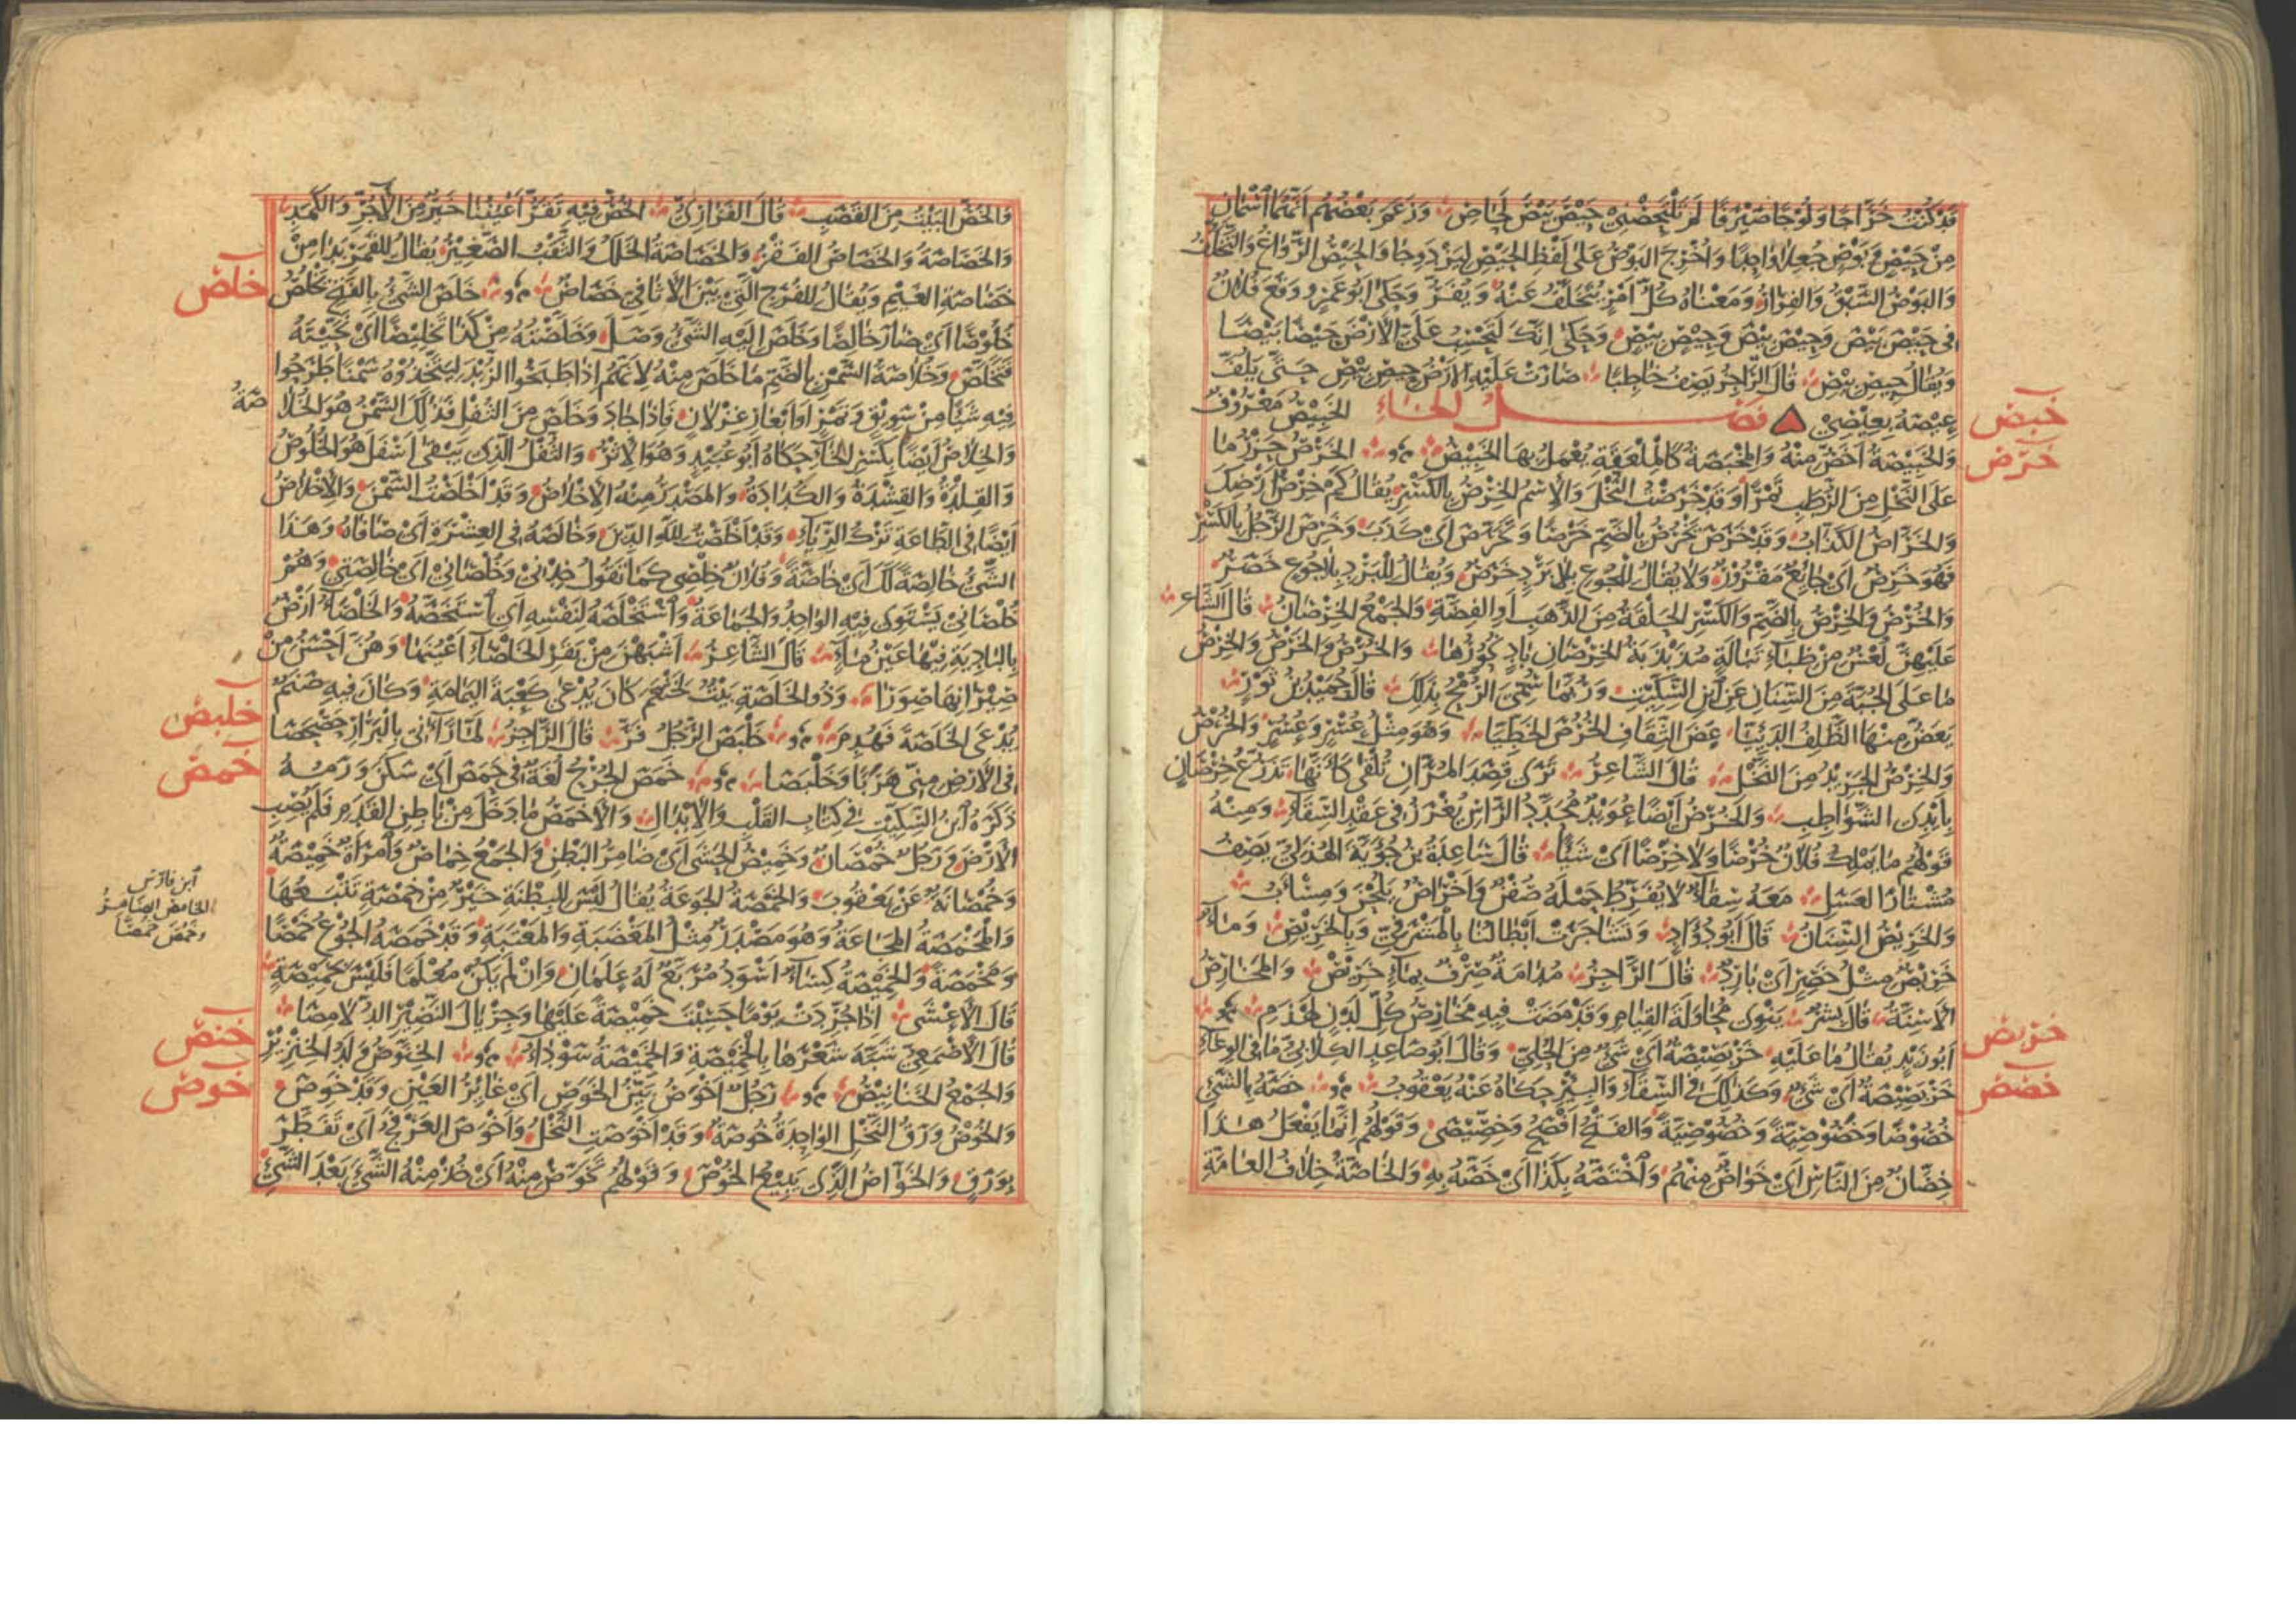 قَدْ كُنْتُ خَرَّاجًا وَلُوجًا صَيْرَفًا لَمْ تَلْتَحِصْنِي حَيْصَ بَيْصَ لَحَاصِ وَزَعَمَ بَعْضُهُمْ أَنَّهُمَا اسْمَانِ
مِنْ حَيْصٍ وَبَوْصٍ جُعِلَا وَاحِدًا وَأُخْرِجَ البَوْصُ عَلَى لَفْظِ الحَيْصِ لِيَزْدَوِجَا وَالحَيْصُ الرَّوَاغُ وَالتَّخَلُّفُ
وَالبَوْصُ السَّبْقُ وَالفِرَارُ وَمَعْنَاهُ كُلُّ أَمْرٍ يُتَخَلَّفُ عَنْهُ وَيُفَرُّ وَحَكَى أَبُو عَمْرٍو وَقَعَ فُلَانٌ
فِي حَيْصَ بَيْصَ وَحِيْصَ بِيْصَ وَحِيْصِ بِيْصِ وَحَكَى إِنَّكَ لَتَحْسِبُ عَلَيَّ الأَرْضَ حَيْصًا بَيْصًا
وَيُقَالُ حِيصِ بِيْصِ قَالَ الرَّاجِزُ يَصِفُ خَاطِبًا صَارَتْ عَلَيْهِ الأَرْضُ حِيصِ بِيْصِ حَتَّى يَلُفَّ
عِيصَهُ بِعِيْصِي فصل الخاء الخَبِيْصُ مَعْرُوفٌ
خبص
وَالخَبِيْصَةُ أَخَصُّ مِنْهُ وَالمِخْبَصَةُ كَالمِلْعَقَةِ يُعْمَلُ بِهَا الخَبِيْصُ الخَرْصُ حَزْرُ مَا
خرص
عَلَى النَّخْلِ مِنَ الرُّطَبِ تَمْرًا وَقَدْ خَرَصْتُ النَّخْلَ وَالاِسْمُ الخِرْصُ بِالكَسْرِ يُقَالُ كَمْ خِرْصُ أَرْضِكَ
وَالخَرَّاصُ الكَذَّابُ وَقَدْ خَرَصَ يَخْرُصُ بِالضَّمِّ خَرْصًا وَتَخَرَّصَ أَيْ كَذَبَ وَخَرِصَ الرَّجُلُ بِالكَسْرِ
فَهُوَ خَرِصٌ أَيْ جَائِعٌ مَقْرُورٌ وَلَا يُقَالُ لِلْجُوعِ بِلَا بَرْدٍ خَرَصٌ وَيُقَالُ لِلْبَرْدِ بِلَا جُوعٍ خَصَرٌ
وَالخُرْصُ وَالخِرْصُ بِالضَّمِّ وَالكَسْرِ الحَلْقَةُ مِنَ الذَّهَبِ أَوِ الفِضَّةِ وَالجَمْعُ الخِرْصَانُ قَالَ الشَّاعِرُ
عَلَيْهِنَّ لُعْسٌ مِنْ ظِبَاءِ تَبَالَةٍ مُذَبْذَبَةُ الخِرْصَانِ بَادٍ نُحُورُهَا وَالخُرْصُ وَالخَرْصُ وَالخِرْصُ
مَا عَلَى الجُبَّةِ مِنَ السِّنَانِ عَنِ ابْنِ السِّكِّيْتِ وَرُبَّمَا سُمِّيَ الرُّمْحُ بِذَلِكَ قَالَ حُمَيْدُ بْنُ ثَوْرٍ
يَعَضُّ مِنْهَا الظَّلِفُ الدَّئِيَّا عَضَّ الثِّقَافِ الخُرُصَ الخَطِيَّا وَهُوَ مِثْلُ عُسْرٍ وَعُسُرٍ وَالخُرْصُ
وَالخِرْصُ الجَرِيْدُ مِنَ النَّخْلِ قَالَ الشَّاعِرُ تَرَى قِصَدَ المُرَّانِ تُلْقَى كَأَنَّهَا تَذَرُّعُ خِرْصَانٍ
بِأَيْدِي الشَّوَاطِبِ وَالخُرْصُ أَيْضًا عُوَيْدٌ مُحَدَّدُ الرَّأْسِ يُغْرَزُ فِي عَقْدِ السِّقَاءِ وَمِنْهُ
قَوْلُهُمْ مَا يَمْلِكُ فُلَانٌ خُرْصًا وَلَا خِرْصًا أَيْ شَيْئًا قَالَ سَاعِدَةُ بْنُ جُؤَيَّةَ الهُذَلِيُّ يَصِفُ
مُشْتَارَ العَسَلِ مَعَهُ سِقَاءٌ لَا يُفَرِّطُ حَمْلَهُ صُفْنٌ وَأَخْرَاصٌ يَلُحْنَ وَمِسْأَبُ
وَالخَرِيْصُ السِّنَانُ قَالَ أَبُو دُؤَادٍ وَتَشَاجَرَتْ أَبْطَالُنَا بِالمَشْرَفِيِّ وَبِالخَرِيْصِ وَمَاءٌ
خَرِيْصٌ مِثْلُ خَصِرٍ أَيْ بَارِدٌ قَالَ الرَّاجِزُ مُدَامَةٌ صِرْفٌ بِمَاءٍ خَرِيْصِ وَالمَخَارِصُ
الأَسِنَّةُ قَالَ بِشْرٌ يَنْوِي مُحَاوَلَةَ القِيَامِ وَقَدْ مَضَتْ فِيهِ مَخَارِصُ كُلِّ لَدْنٍ لَهْذَمِ
خربص
أَبُو زَيْدٍ يُقَالُ مَا عَلَيْهِ خَرْبَصِيْصَةٌ أَيْ شَيْءٌ مِنَ الحُلِيِّ وَقَالَ أَبُو صَاعِدٍ الكِلَابِيُّ مَا فِي الوِعَاءِ
خَرْبَصِيْصَةٌ أَيْ شَيْءٌ وَكَذَلِكَ فِي السِّقَاءِ وَالبِئْرِ حَكَاهُ عَنْهُ يَعْقُوبُ خَصَّهُ بِالشَّيْءِ
خصص
خُصُوصًا وَخُصُوصِيَّةً وَخَصُوصِيَّةً وَالفَتْحُ أَفْصَحُ وَخِصِّيْصَى وَقَوْلُهُمْ إِنَّمَا يَفْعَلُ هَذَا
خِصَّانٌ مِنَ النَّاسِ أَيْ خَوَاصُّ مِنْهُمْ وَاخْتَصَّهُ بِكَذَا أَيْ خَصَّهُ بِهِ وَالخَاصَّةُ خِلَافُ العَامَّةِ
وَالخُصُّ البَيْتُ مِنَ القَصَبِ قَالَ الفَزَارِيُّ الخُصُّ فِيهِ تَقَرُّ أَعْيُنُنَا خَيْرٌ مِنَ الآجُرِّ وَالكَمَدِ
وَالخَصَاصَةُ وَالخَصَاصُ الفَقْرُ وَالخَصَاصَةُ الخَلَلُ وَالثَّقْبُ الصَّغِيْرُ يُقَالُ لِلْقَمَرِ بَدَا مِنْ
خَصَاصَةِ الغَيْمِ وَيُقَالُ لِلْفُرَجِ الَّتِي بَيْنَ الأَثَافِي خَصَاصٌ خَلَصَ الشَّيْءُ بِالفَتْحِ يَخْلُصُ
خلص
خُلُوصًا أَيْ صَارَ خَالِصًا وَخَلَصَ إِلَيْهِ الشَّيْءُ وَصَلَ وَخَلَّصْتُهُ مِنْ كَذَا تَخْلِيْصًا أَيْ نَجَّيْتُهُ
فَتَخَلَّصَ وَخُلَاصَةُ السَّمْنِ بِالضَّمِّ مَا خَلَصَ مِنْهُ لِأَنَّهُمْ إِذَا طَبَخُوا الزُّبْدَ لِيَتَّخِذُوهُ سَمْنًا طَرَحُوا
فِيهِ شَيْئًا مِنْ سَوِيْقٍ وَتَمْرٍ أَوْ أَبْعَارِ غِزْلَانٍ فَإِذَا جَادَ وَخَلَصَ مِنَ الثُّفْلِ فَذَلِكَ السَّمْنُ هُوَ الخُلَا
صَةُ
وَالخِلَاصُ أَيْضًا بِكَسْرِ الخَاءِ حَكَاهُ أَبُو عُبَيْدٍ وَهُوَ الإِثْرُ وَالثُّفْلُ الَّذِي يَبْقَى أَسْفَلَ هُوَ الخُلُوصُ
وَالقِلْدَةُ وَالقِشْدَةُ وَالكُدَادَةُ وَالمَصْدَرُ مِنْهُ الإِخْلَاصُ وَقَدْ أَخْلَصْتُ السَّمْنَ وَالإِخْلَاصُ
أَيْضًا فِي الطَّاعَةِ تَرْكُ الرِّيَاءِ وَقَدْ أَخْلَصْتُ لِلَّهِ الدِّيْنَ وَخَالَصَهُ فِي العِشْرَةِ أَيْ صَافَاهُ وَهَذَا
الشَّيْءُ خَالِصَةٌ لَكَ أَيْ خَاصَّةً وَفُلَانٌ خِلْصِي كَمَا تَقُولُ خِدْنِي وَخُلْصَانِي أَيْ خَالِصَتِي وَهُمْ
خُلْصَانِي يَسْتَوِي فِيهِ الوَاحِدُ وَالجَمَاعَةُ وَاسْتَخْلَصَهُ لِنَفْسِهِ أَيِ اسْتَخَصَّهُ وَالخَلْصَاءُ أَرْضٌ
بِالبَادِيَةِ فِيْهَا عَيْنُ مَاءٍ قَالَ الشَّاعِرُ أَشْبَهْنَ مِنْ بَقَرِ الخَلْصَاءِ أَعْيُنَهَا وَهُنَّ أَحْسَنُ مِنْ
صِيْرَانِهَا صِوَرَا وَذُو الخَلَصَةِ بَيْتٌ لِخَثْعَمَ كَانَ يُدْعَى كَعْبَةَ اليَمَامَةِ وَكَانَ فِيهِ صَنَمٌ
يُدْعَى الخَلَصَةَ فَهُدِمَ خَلْبَصَ الرَّجُلُ فَرَّ قَالَ الرَّاجِزُ لَمَّا رَآنِي بِالبَرَازِ حَصْحَصَا
خلبص
فِي الأَرْضِ مِنِّي هَرَبًا وَخَلْبَصَا خَمَصَ الجُرْحُ لُغَةٌ فِي حَمَصَ أَيْ سَكَنَ وَرَمُهُ
خمص
ذَكَرَهُ ابْنُ السِّكِّيْتِ فِي كِتَابِ القَلْبِ وَالإِبْدَالِ وَالأَخْمَصُ مَا دَخَلَ مِنْ بَاطِنِ القَدَمِ فَلَمْ يُصِبِ
الأَرْضَ وَرَجُلٌ خُمْصَانٌ وَخَمِيْصُ الحَشَى أَيْ ضَامِرُ البَطْنِ وَالجَمْعُ خِمَاصٌ وَامْرَأَةٌ خَمِيْصَةٌ
وَخُمْصَانَةٌ عَنْ يَعْقُوبَ وَالخَمْصَةُ الجَوْعَةُ يُقَالُ لَيْسَ لِلْبِطْنَةِ خَيْرٌ مِنْ خَمْصَةٍ تَتْبَعُهَا
ابن فارس
الخامص الضامر
وخمص خمصا
وَالمَخْمَصَةُ المَجَاعَةُ وَهُوَ مَصْدَرٌ مِثْلُ المَغْضَبَةِ وَالمَعْتَبَةِ وَقَدْ خَمَصَهُ الجُوْعُ خَمْصًا
وَمَخْمَصَةً وَالخَمِيْصَةُ كِسَاءٌ أَسْوَدُ مُرَبَّعٌ لَهُ عَلَمَانِ وَإِنْ لَمْ يَكُنْ مُعْلَمًا فَلَيْسَ بِخَمِيْصَةٍ
قَالَ الأَعْشَى إِذَا جُرِّدَتْ يَوْمًا حَسِبْتَ خَمِيْصَةً عَلَيْهَا وَجِرْيَالَ النَّضِيْرِ الدُّلَامِصَا
قَالَ الأَصْمَعِيُّ شَبَّهَ شَعْرَهَا بِالخَمِيْصَةِ وَالخَمِيْصَةُ سَوْدَاءُ الخِنَّوْصُ وَلَدُ الخِنْزِيْرِ
خنص
وَالجَمْعُ الخَنَانِيْصُ رَجُلٌ أَخْوَصُ بَيِّنُ الخَوَصِ أَيْ غَائِرُ العَيْنِ وَقَدْ خَوِصَ
خوص
وَالخُوْصُ وَرَقُ النَّخْلِ الوَاحِدَةُ خُوصَةٌ وَقَدْ أَخْوَصَتِ النَّخْلُ وَأَخْوَصَ العَرْفَجُ أَيْ تَفَطَّرَ
بِوَرَقٍ وَالخَوَّاصُ الَّذِي يَبِيْعُ الخُوْصَ وَقَوْلُهُمْ تَخَوَّصْ مِنْهُ أَيْ خُذْ مِنْهُ الشَّيْءَ بَعْدَ الشَّيْءِ